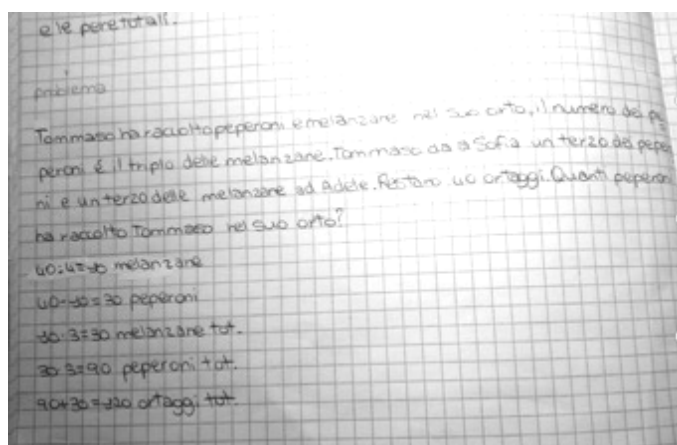 e le pere totali.
problema
Tommaso ha raccolto peperoni e melanzane nel suo orto, il numero dei pe
peroni é il triplo delle melanzane. Tommaso da a Sofia un terzo dei pepe
ni e un terzo delle melanzane ad Adele. Restano 40 ortaggi. Quanti peperoni
ha raccolto Tommaso nel suo orto?
40:4=10 melanzane
40-10=30 peperoni
10·3=30 melanzane tot.
30·3=90 peperoni tot.
90+30=120 ortaggi tot.